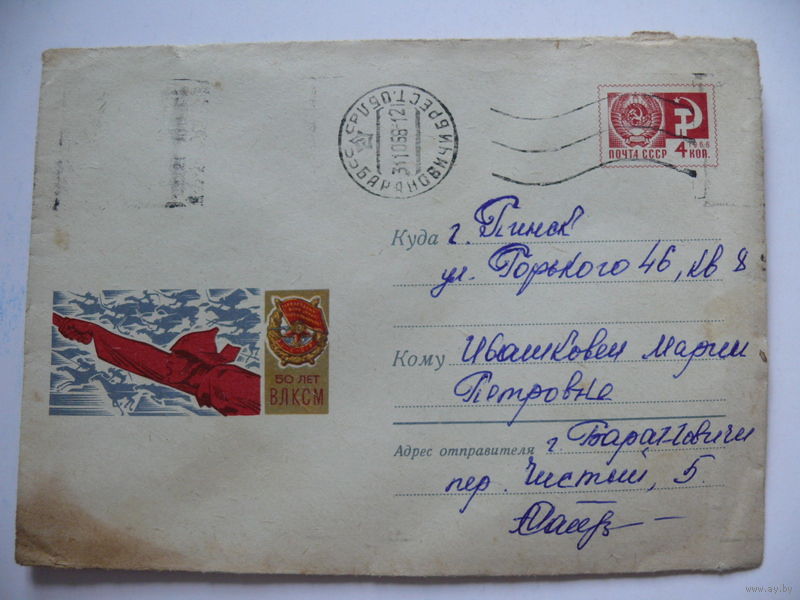 БАРАНОВИЧИ БРЕСТ.ОБЛ.
311068-12
ПОЧТА СССР
1966
4 КОП.
Куда г. Пинск
ул. Горького 46, кв 8
50 ЛЕТ
ВЛКСМ
Кому Ивашкевич Марии
Петровне
Адрес отправителя г. Барановичи
пер. Чистый, 5.
www.ay.by